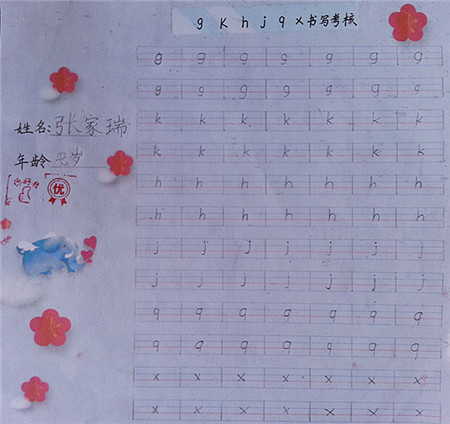 g k h j q x 书写考核
g g g g g g g
g g g g g g g
姓名:张家瑞
k k k k k k k
k k k k k k k
年龄 岁
h h h h h h h
优
h h h h h h h
j j j j j j j
j j j j j j j
q q q q q q q
q q q q q q q
x x x x x x x
x x x x x x x